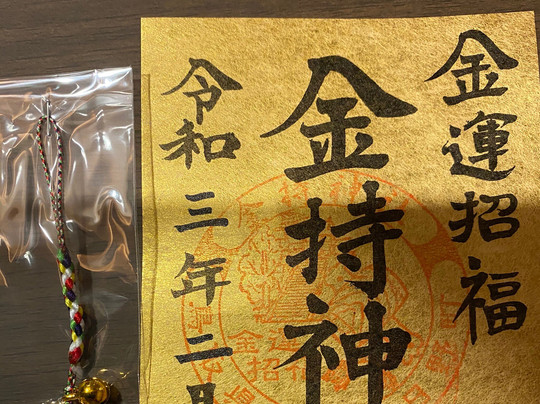 金運招福
金持神
令和三年二月
金運
招福